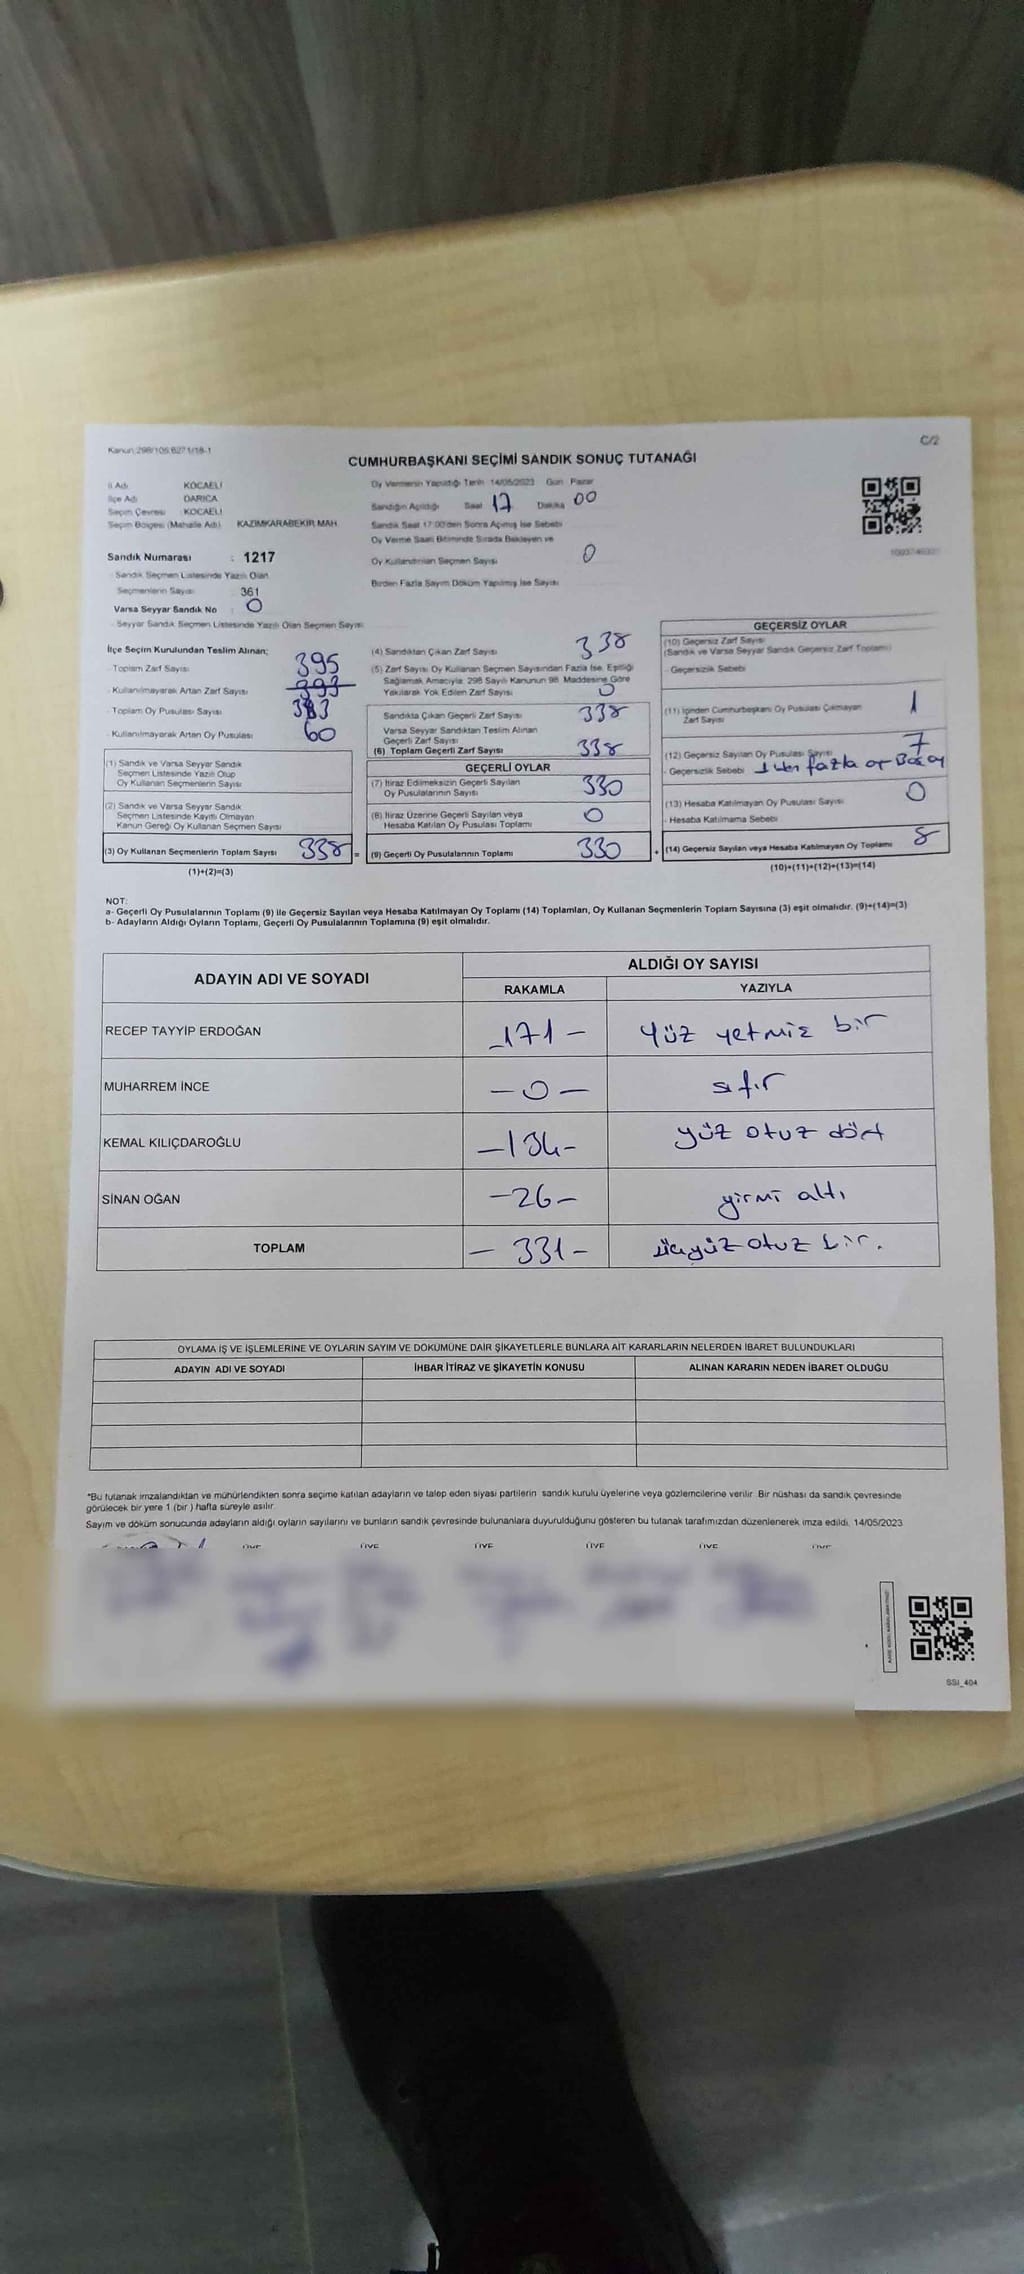 Kanun:298/105,6271/18-1
C/2
CUMHURBAŞKANI SEÇİMİ SANDIK SONUÇ TUTANAĞI
İl Adı KOCAELİ
İlçe Adı DARICA
Seçim Çevresi KOCAELİ
Seçim Bölgesi (Mahalle Adı) KAZIMKARABEKİR MAH.
Sandık Numarası : 1217
Sandık Seçmen Listesinde Yazılı Olan
Seçmenlerin Sayısı 361
Varsa Seyyar Sandık No : 0
Seyyar Sandık Seçmen Listesinde Yazılı Olan Seçmen Sayısı
Oy Vermenin Yapıldığı Tarih 14/05/2023 Gün Pazar
Sandığın Açıldığı Saat 17 Dakika 00
Sandık Saat 17:00'den Sonra Açılmış İse Sebebi
Oy Verme Saati Bitiminde Sırada Bekleyen ve
Oy Kullandırılan Seçmen Sayısı 0
Birden Fazla Sayım Döküm Yapılmış İse Sayısı
İlçe Seçim Kurulundan Teslim Alınan;
Toplam Zarf Sayısı 395
Kullanılmayarak Artan Zarf Sayısı
Toplam Oy Pusulası Sayısı
Kullanılmayarak Artan Oy Pusulası 60
(1) Sandık ve Varsa Seyyar Sandık
Seçmen Listesinde Yazılı Olup
Oy Kullanan Seçmenlerin Sayısı
(2) Sandık ve Varsa Seyyar Sandık
Seçmen Listesinde Kayıtlı Olmayan
Kanun Gereği Oy Kullanan Seçmen Sayısı
(3) Oy Kullanan Seçmenlerin Toplam Sayısı 338 =
(1)+(2)=(3)
(4) Sandıktan Çıkan Zarf Sayısı 338
(5) Zarf Sayısı Oy Kullanan Seçmen Sayısından Fazla İse, Eşitliği
Sağlamak Amacıyla; 298 Sayılı Kanunun 98. Maddesine Göre
Yakılarak Yok Edilen Zarf Sayısı 0
Sandıkta Çıkan Geçerli Zarf Sayısı 338
Varsa Seyyar Sandıktan Teslim Alınan
Geçerli Zarf Sayısı
(6) Toplam Geçerli Zarf Sayısı 338
GEÇERLİ OYLAR
(7) İtiraz Edilmeksizin Geçerli Sayılan
Oy Pusulalarının Sayısı 330
(8) İtiraz Üzerine Geçerli Sayılan veya
Hesaba Katılan Oy Pusulası Toplamı 0
(9) Geçerli Oy Pusulalarının Toplamı 330 +
GEÇERSİZ OYLAR
(10) Geçersiz Zarf Sayısı
(Sandık ve Varsa Seyyar Sandık Geçersiz Zarf Toplamı)
- Geçersizlik Sebebi
(11) İçinden Cumhurbaşkanı Oy Pusulası Çıkmayan
Zarf Sayısı 1
(12) Geçersiz Sayılan Oy Pusulası Sayısı 7
- Geçersizlik Sebebi 1 den fazla oy Boş oy
(13) Hesaba Katılmayan Oy Pusulası Sayısı 0
- Hesaba Katılmama Sebebi
(14) Geçersiz Sayılan veya Hesaba Katılmayan Oy Toplamı 8
(10)+(11)+(12)+(13)=(14)
NOT:
a- Geçerli Oy Pusulalarının Toplamı (9) ile Geçersiz Sayılan veya Hesaba Katılmayan Oy Toplamı (14) Toplamları, Oy Kullanan Seçmenlerin Toplam Sayısına (3) eşit olmalıdır. (9)+(14)=(3)
b- Adayların Aldığı Oyların Toplamı, Geçerli Oy Pusulalarının Toplamına (9) eşit olmalıdır.
ADAYIN ADI VE SOYADI
ALDIĞI OY SAYISI
RAKAMLA YAZIYLA
RECEP TAYYİP ERDOĞAN -171- Yüz yetmiş bir
MUHARREM İNCE -0- sıfır
KEMAL KILIÇDAROĞLU -134- yüz otuz dört
SİNAN OĞAN -26- yirmi altı
TOPLAM -331- üçyüz otuz bir.
OYLAMA İŞ VE İŞLEMLERİNE VE OYLARIN SAYIM VE DÖKÜMÜNE DAİR ŞİKAYETLERLE BUNLARA AİT KARARLARIN NELERDEN İBARET BULUNDUKLARI
ADAYIN ADI VE SOYADI İHBAR İTİRAZ VE ŞİKAYETİN KONUSU ALINAN KARARIN NEDEN İBARET OLDUĞU
*Bu tutanak imzalandıktan ve mühürlendikten sonra seçime katılan adayların ve talep eden siyasi partilerin sandık kurulu üyelerine veya gözlemcilerine verilir. Bir nüshası da sandık çevresinde
görülecek bir yere 1 (bir ) hafta süreyle asılır.
Sayım ve döküm sonucunda adayların aldığı oyların sayılarını ve bunların sandık çevresinde bulunanlara duyurulduğunu gösteren bu tutanak tarafımızdan düzenlenerek imza edildi. 14/05/2023
ÜYE ÜYE ÜYE ÜYE ÜYE ÜYE
SSI_404